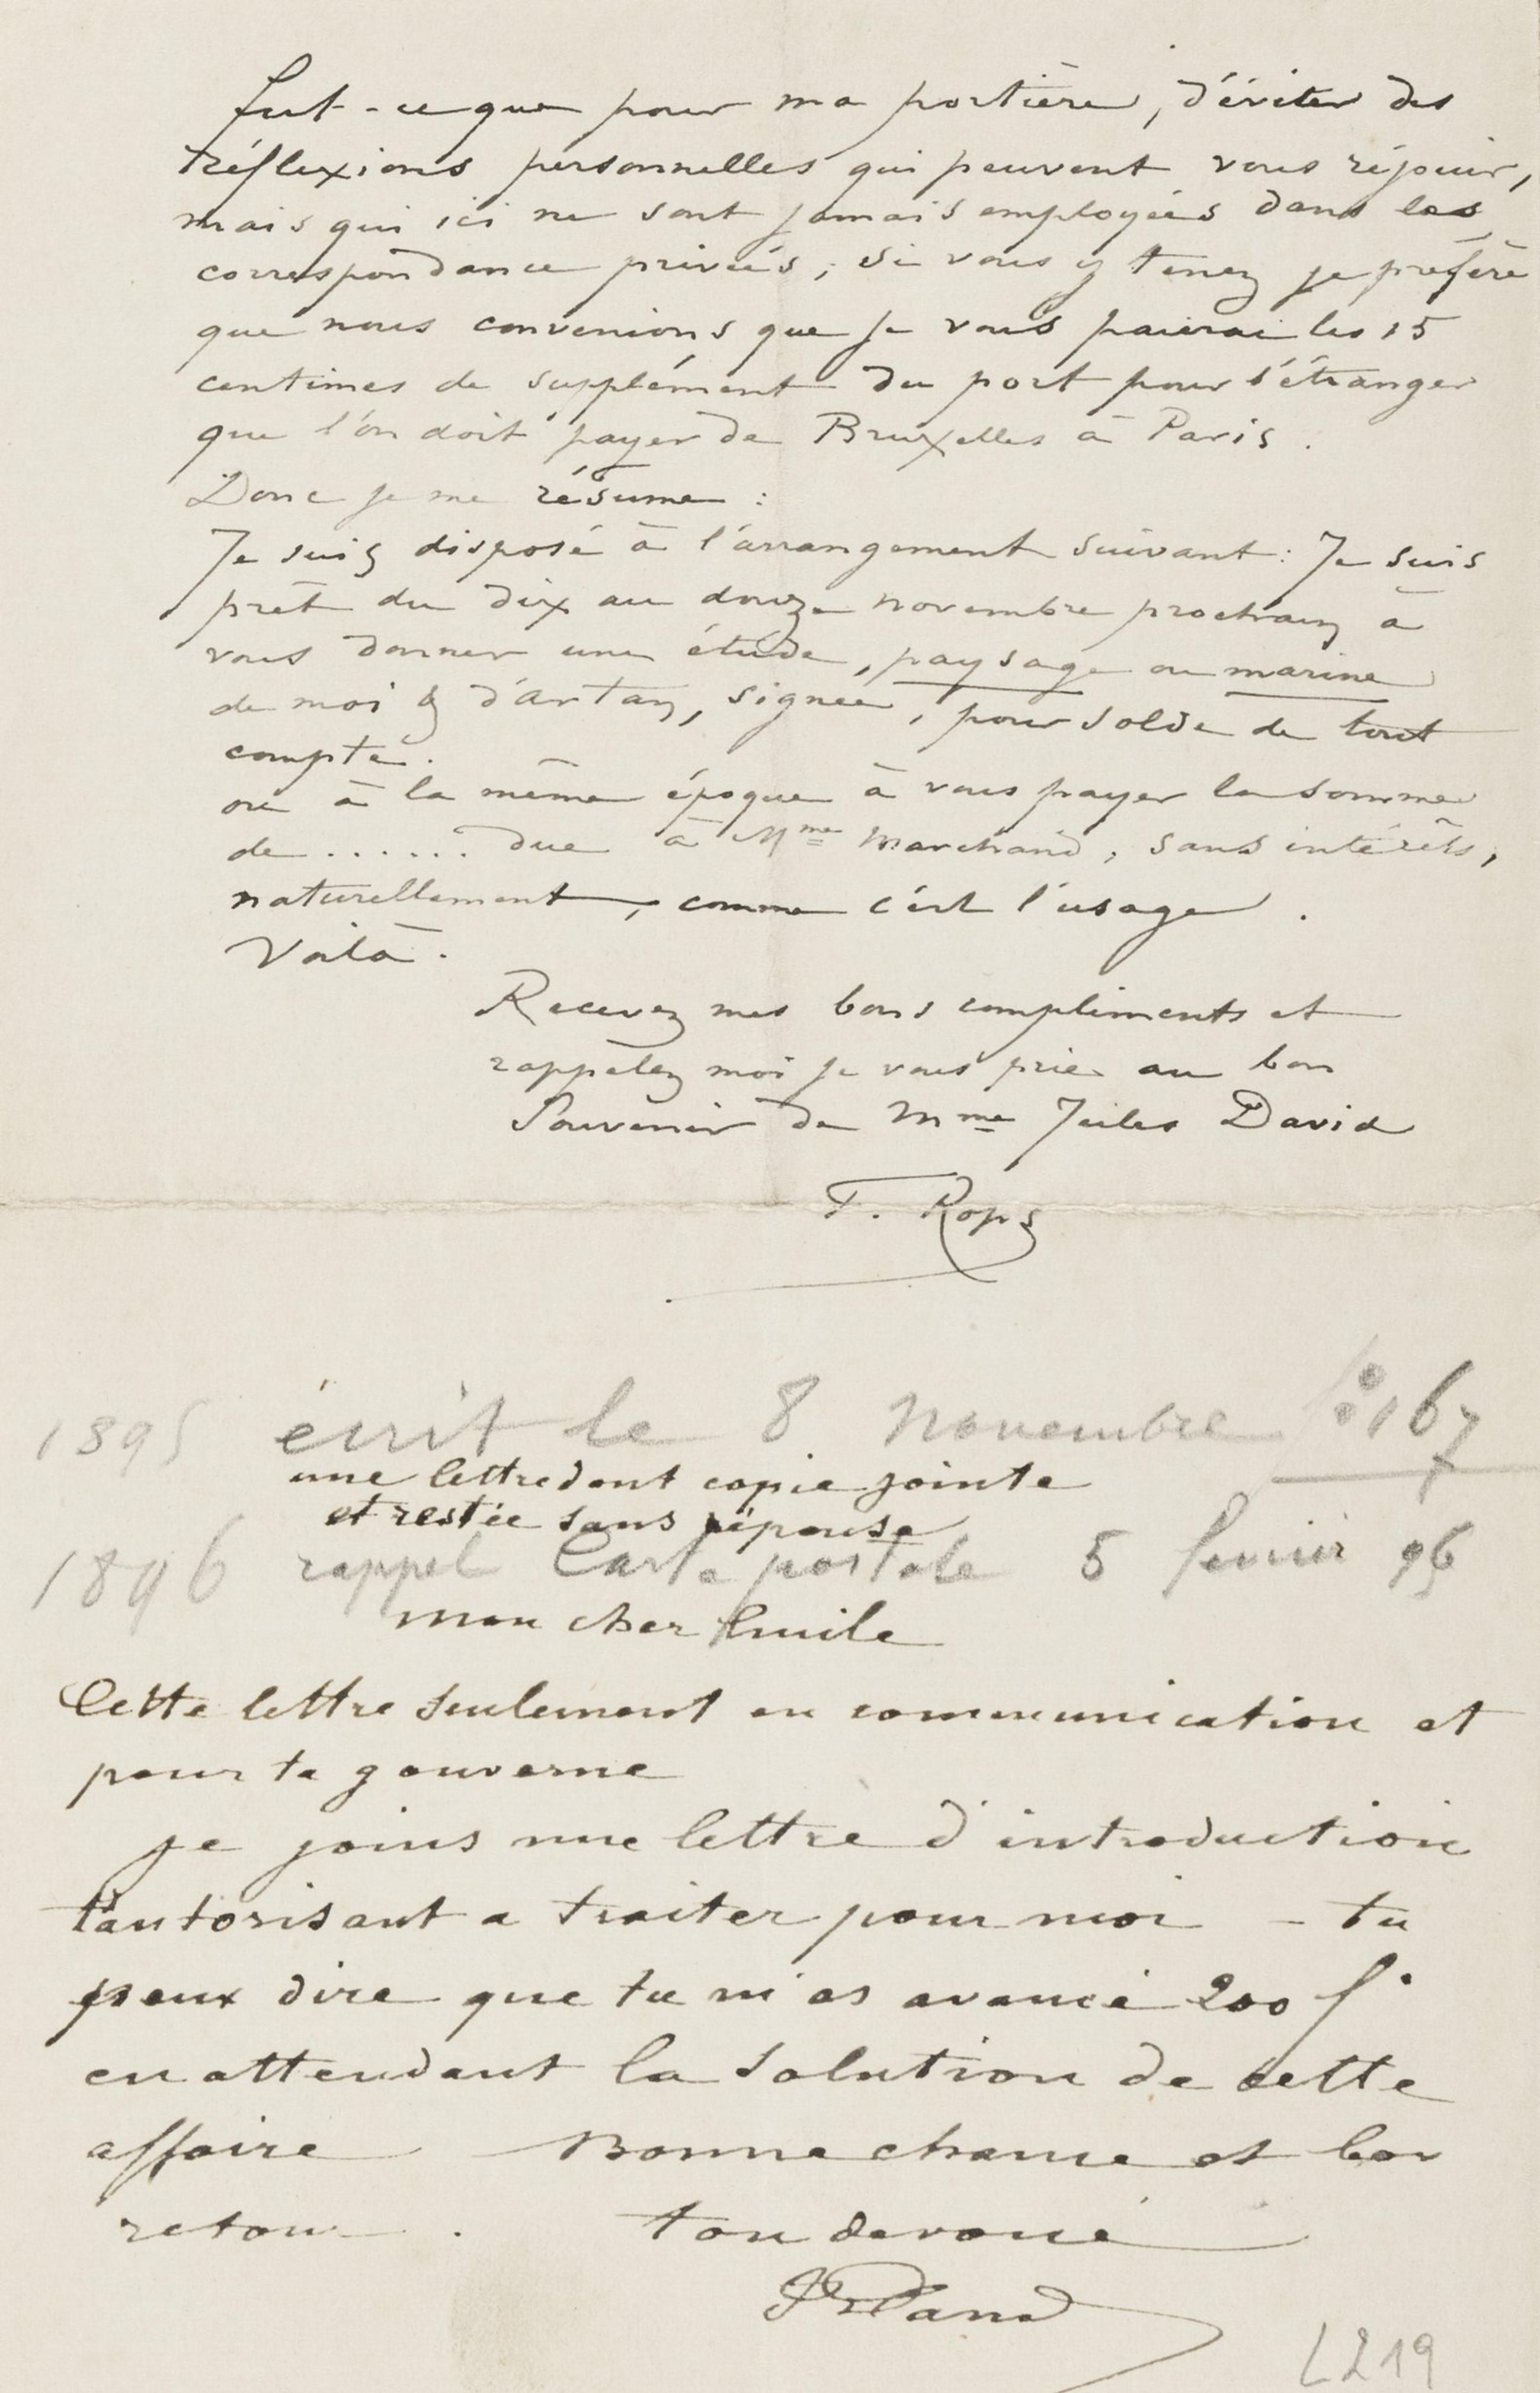 fut-ce que pour ma portière, d'éviter des
réflexions personnelles qui peuvent vous réjouir,
mais qui ici ne sont jamais employées dans les
correspondance privées ; si vous y tenez je préfère
que nous convenions que je vous paierai les 15
centimes de supplément du port pour l'étranger
que l'on doit payer de Bruxelles à Paris.
Donc je me résume :
Je suis disposé à l'arrangement suivant : Je suis
prêt du dix au douze novembre prochain à
vous donner une étude, paysage ou marine
de moi & d'Artan, signée, pour solde de tout
compte.
ou à la même époque à vous payer la somme
de ...... due à Mme Marchand, sans intérêts,
naturellement, comme c'est l'usage.
Voilà.
Recevez mes bons compliments et
rappelez moi je vous prie au bon
Souvenir de Mme Jules David
F. Rops
1895 écrit le 8 novembre fo 167
une lettre dont copie jointe
et restée sans réponse
1896 rappel Carte postale 5 fevrier 96
mon cher Emile
Cette lettre seulement en communication et
pour ta gouverne
je joins une lettre d'introduction
t'autorisant a traiter pour moi – tu
peux dire que tu m'as avancé 200 f.
en attendant la solution de cette
affaire Bonne chance et bon
retour. ton devoué
L219